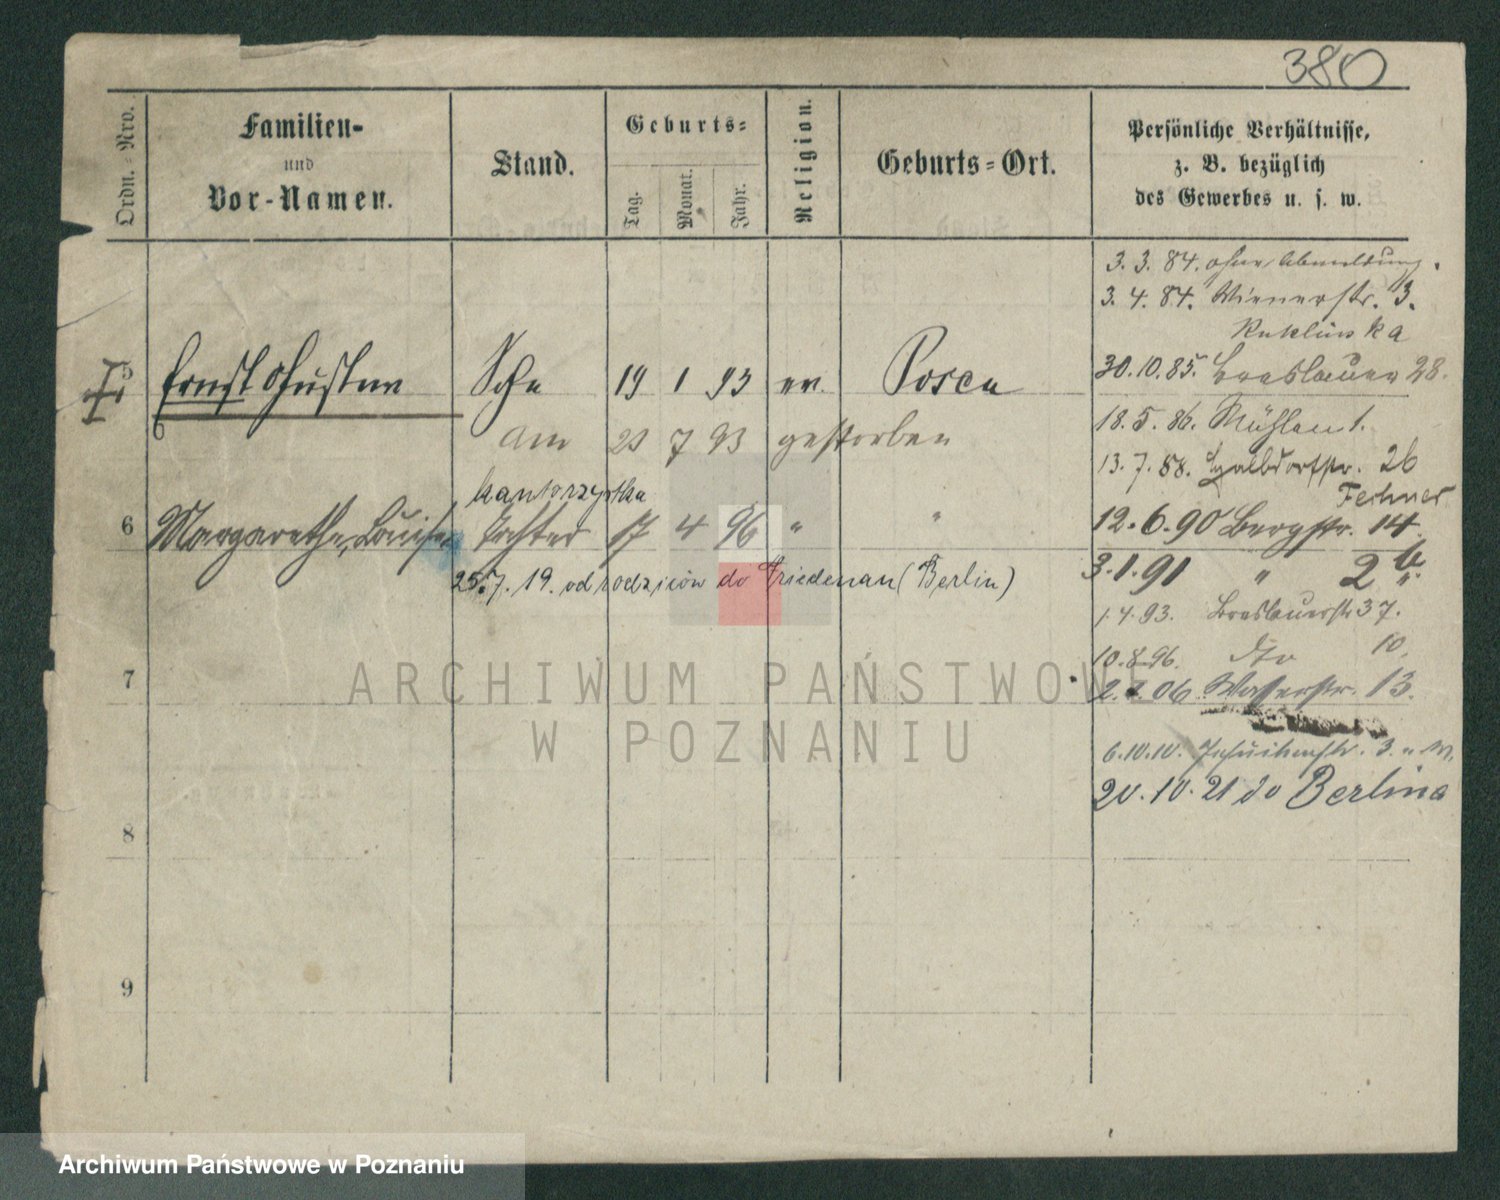 380
Ordn.-Nro.
Familien-
und
Vor-Namen.
Stand.
Geburts-
Tag.
Monat.
Jahr.
Religion.
Geburts-Ort.
Persönliche Verhältnisse,
z. B. bezüglich
des Gewerbes u. s. w.
3. 3. 84. ohne Abmeldung.
3. 4. 84. Wienerstr. 3.
30. 10. 85. Breslauer 28.
5 Ernst Gustav 19 1 93 ev. Posen
18. 5. 86. Mühlen 1.
am 23 7 93 gestorben
13. 7. 88. 26
Fechner
kantorzystka
6 Margarethe, Louise Tochter 17 4 96 " "
12. 6. 90 Bergstr. 14.
3. 1. 91 " 2b
25. 7. 19. od rodziców do Friedenau (Berlin)
1. 4. 93. Breslauerstr 37.
10. 8. 96. dto 10.
7
06 Wasserstr. 13.
6. 10. 10. Jesuitenstr. 3.
20. 10. 21 do Berlina
8
9
ARCHIWUM PAŃSTWOWE
W POZNANIU
Archiwum Państwowe w Poznaniu